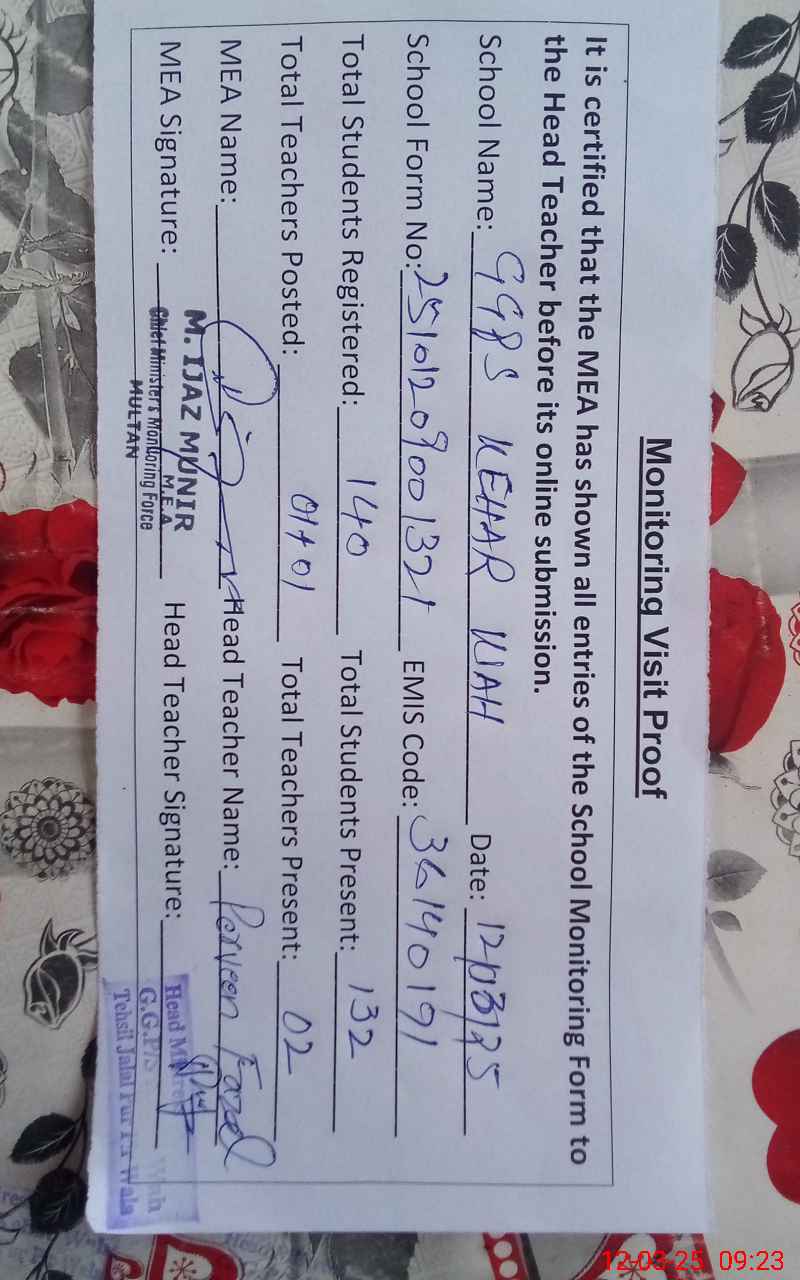 Monitoring Visit Proof
It is certified that the MEA has shown all entries of the School Monitoring Form to
the Head Teacher before its online submission.
School Name: GGPS KEHAR WAH Date: 12/03/25
School Form No: 25101209001321 EMIS Code: 36140191
Total Students Registered: 140 Total Students Present: 132
Total Teachers Posted: 01+01 Total Teachers Present: 02
MEA Name: Head Teacher Name: Parveen Fazal
MEA Signature: Head Teacher Signature:
M. IJAZ MUNIR
M.E.A
Chief Minister's Monitoring Force
MULTAN
Head
G.G.P/S Wah
Tehsil Jalal Pur Pir Wala
12-03-25 09:23